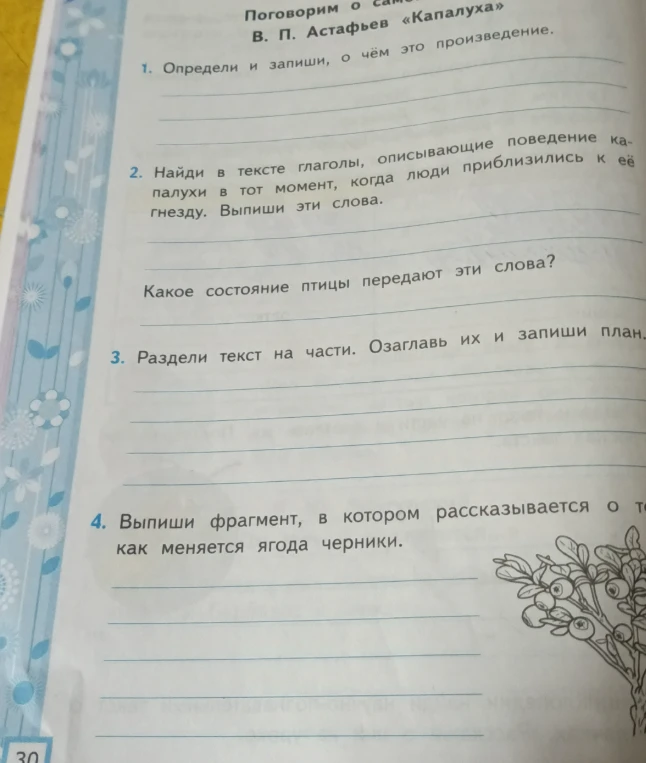 Поговорим о
В. П. Астафьев «Капалуха»
1. Определи и запиши, о чём это произведение.
2. Найди в тексте глаголы, описывающие поведение ка-
палухи в тот момент, когда люди приблизились к её
гнезду. Выпиши эти слова.
Какое состояние птицы передают эти слова?
3. Раздели текст на части. Озаглавь их и запиши план.
4. Выпиши фрагмент, в котором рассказывается о
как меняется ягода черники.
30